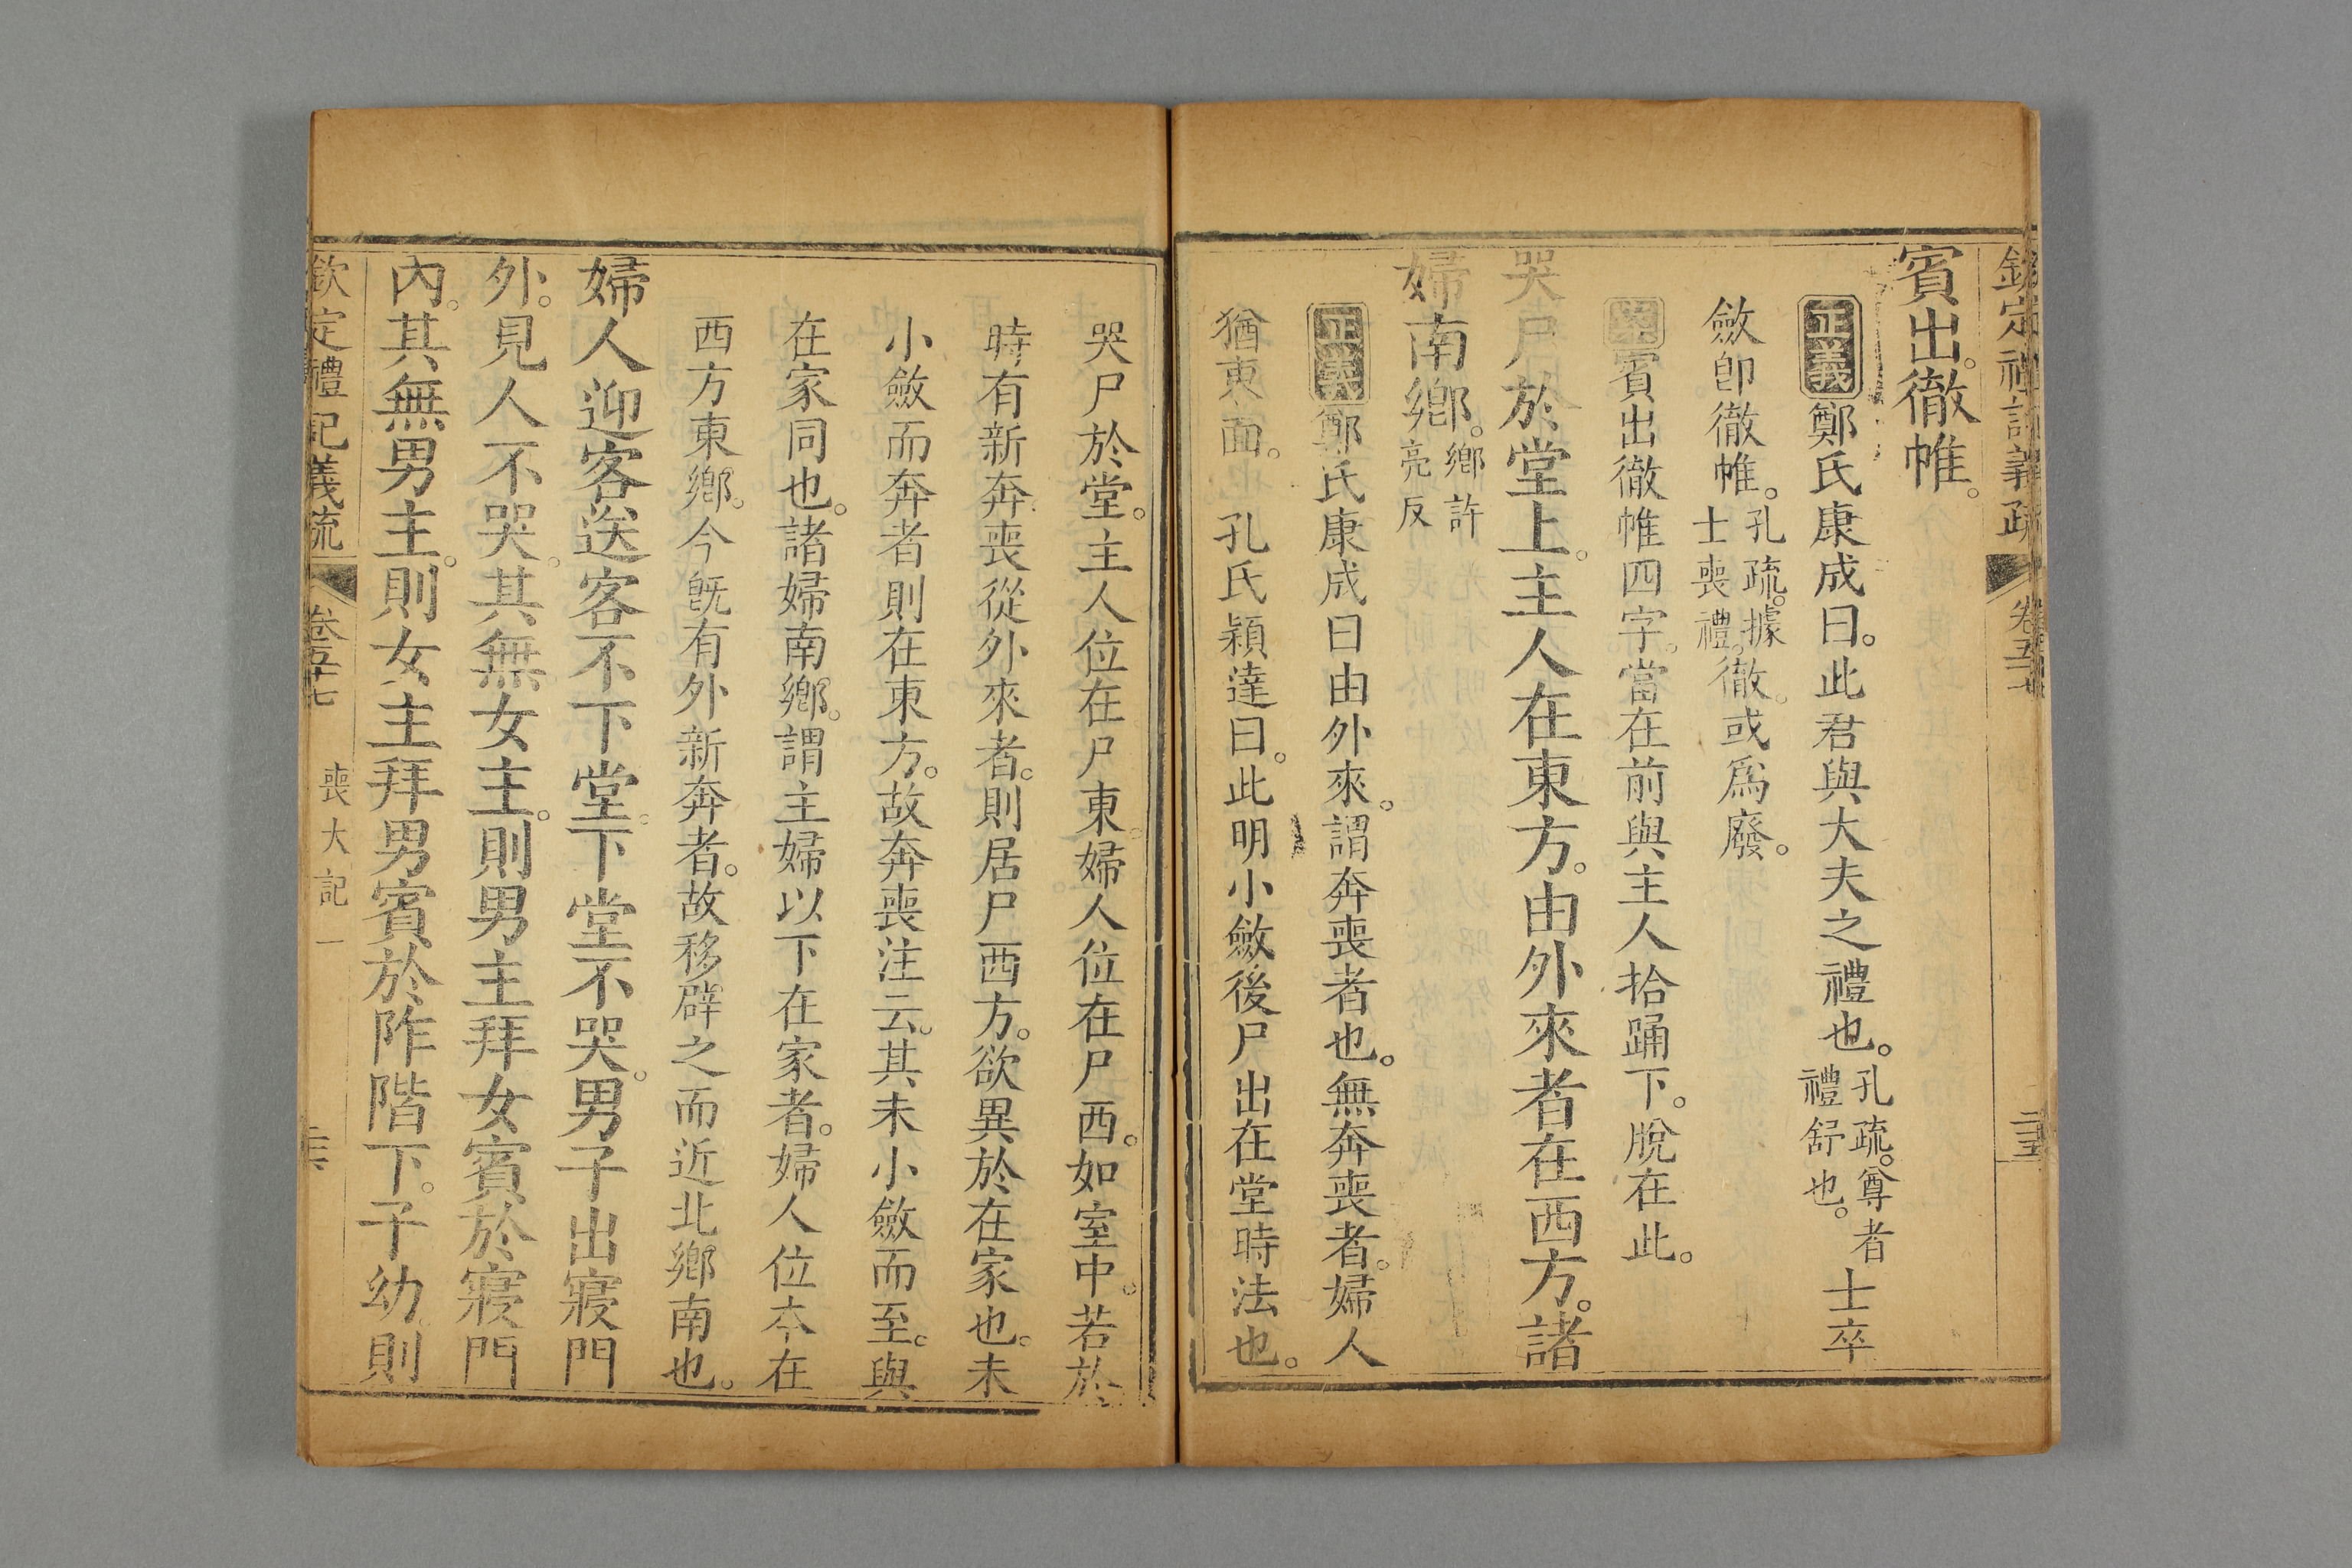 欽定禮記義疏 卷五十七 二十五
賓出。徹帷。
正義 鄭氏康成曰。此君與大夫之禮也。孔疏。尊者禮舒也。士卒
斂卽徹帷。孔疏。據士喪禮。徹。或爲廢。
賓出徹帷四字。當在前與主人拾踊下。脫在此。
哭尸於堂上。主人在東方。由外來者在西方。諸
婦南鄉。鄉許亮反
正義 鄭氏康成曰由外來。謂奔喪者也。無奔喪者。婦人
猶東面。也孔氏穎達曰。此明小斂後尸出在堂時法也。
哭尸於堂。主人位在尸東。婦人位在尸西。如室中。若於
時有新奔喪從外來者。則居尸西方。欲異於在家也。未
小斂而奔者則在東方。故奔喪注云。其未小斂而至。與
在家同也。諸婦南鄉。謂主婦以下在家者。婦人位本在
西方東鄉。今旣有外新奔者。故移辟之而近北鄉南也。
婦人迎客送客不下堂。下堂不哭。男子出寢門
外。見人不哭。其無女主。則男主拜女賓於寢門
內。其無男主。則女主拜男賓於阼階下。子幼。則
欽定禮記義疏 卷五十七 喪大記一 二十六